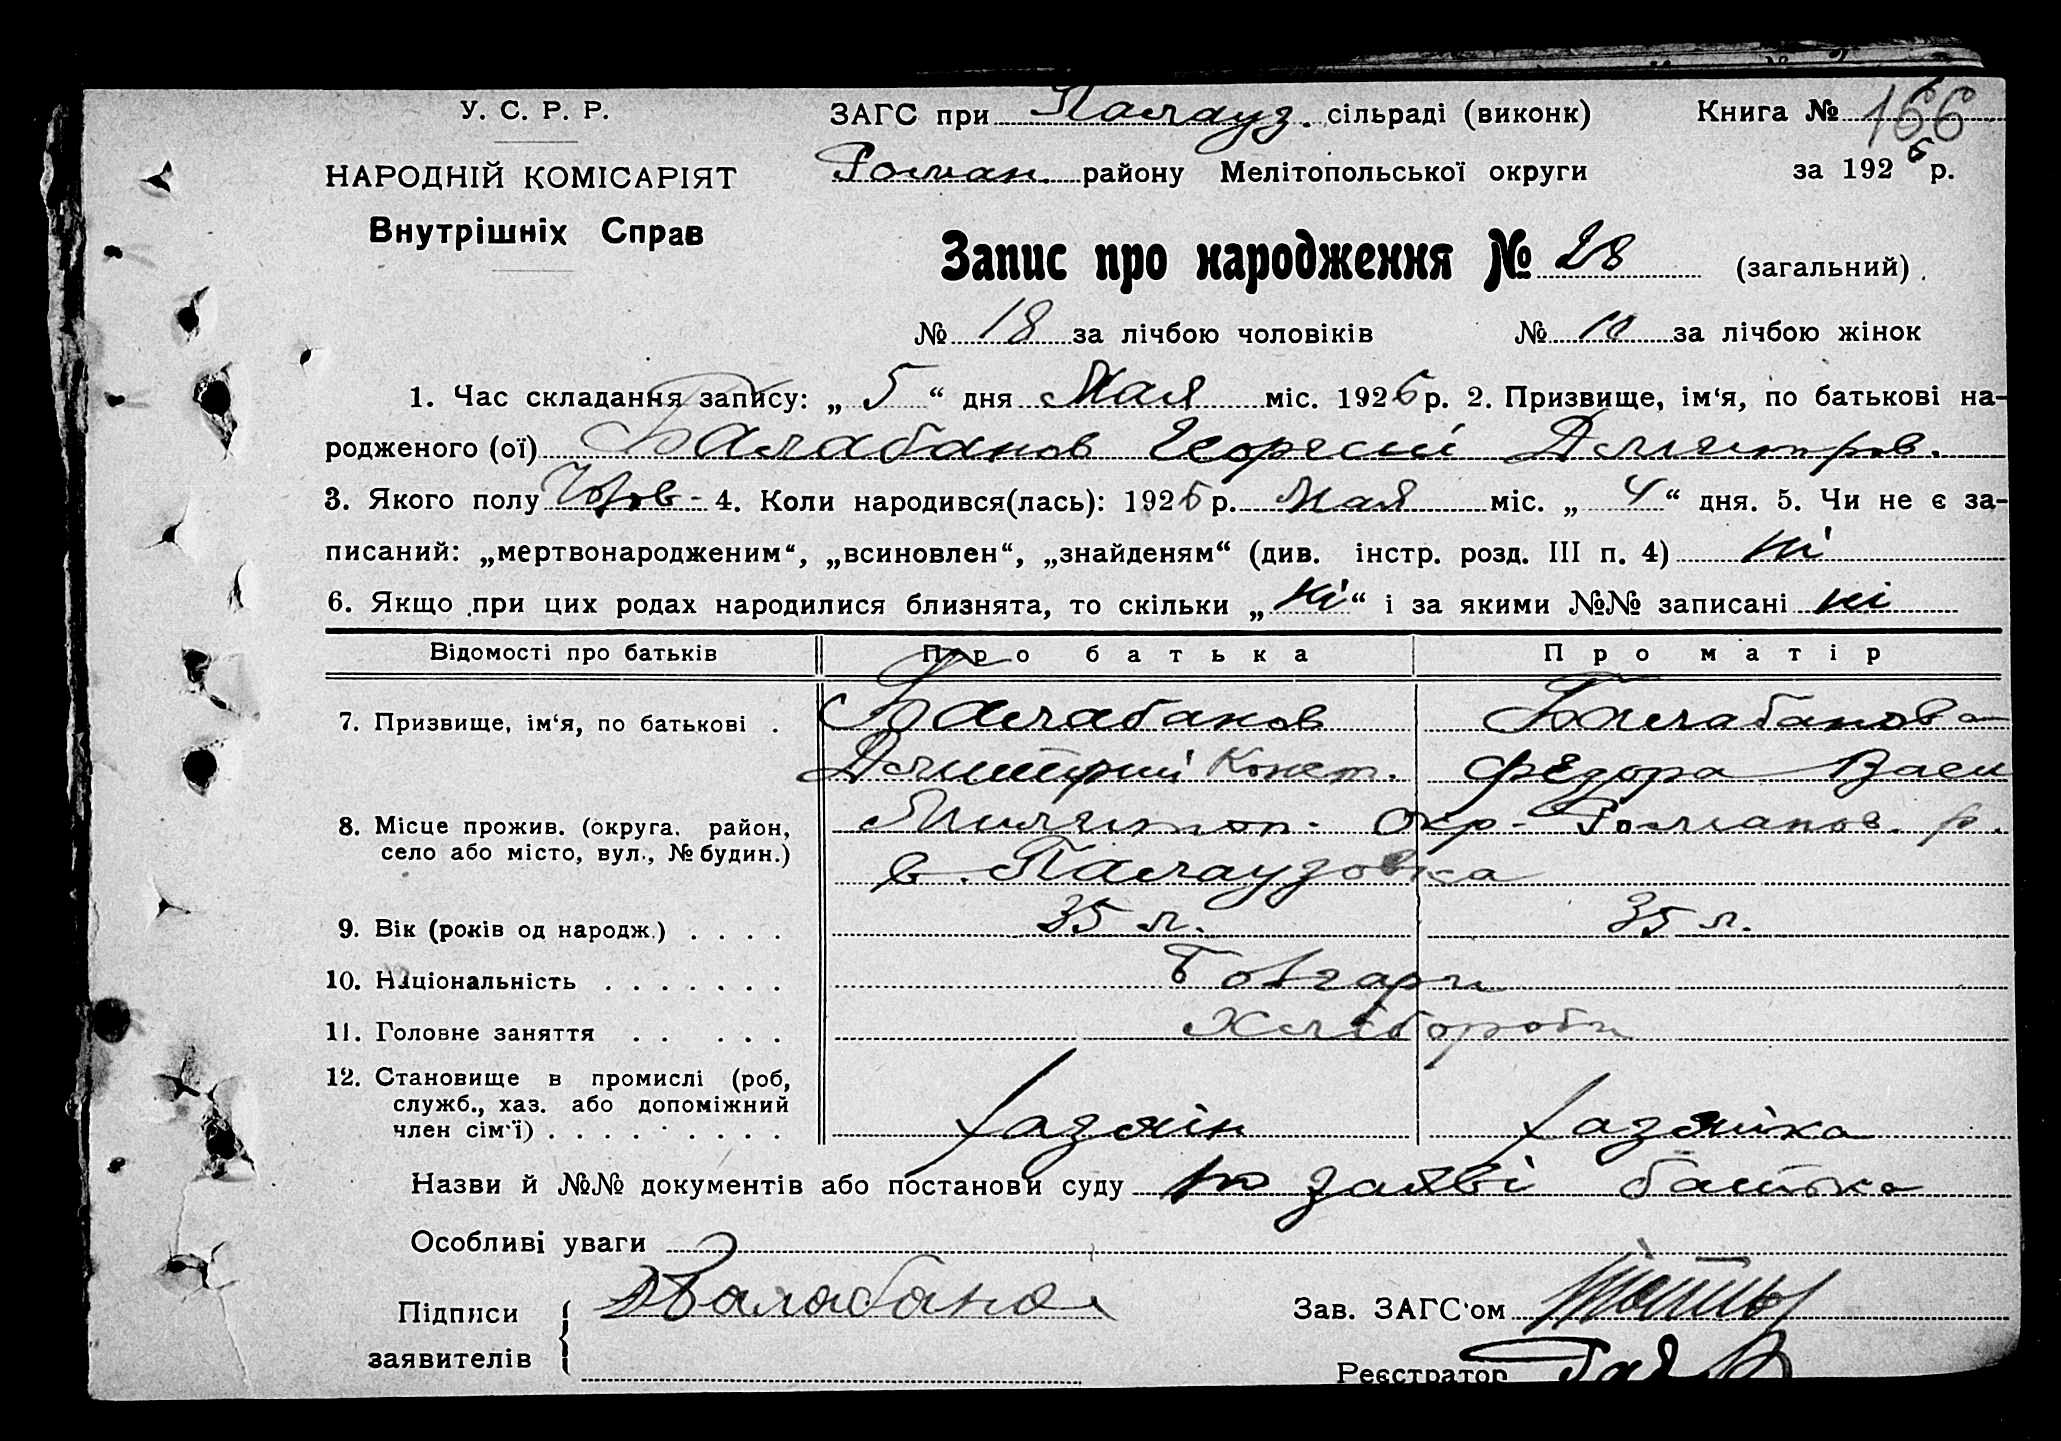 У. С. Р. Р.
НАРОДНІЙ КОМІСАРІЯТ
Внутрішніх Справ
ЗАГС при Палауз. сільраді (виконк)
Роман. району Мелітопольської округи
Книга № 166
за 1926 р.
Запис про народження № 28 (загальний)
№ 18 за лічбою чоловіків № 10 за лічбою жінок
1. Час складання запису: „ 5 “ дня Мая міс. 1926 р. 2. Призвище, ім‘я, по батькові на-
родженого (ої) Балабанов Георгий Дмитров.
3. Якого полу Чолов- 4. Коли народився(лась): 1926 р. Мая міс. „ 4 “ дня. 5. Чи не є за-
писаний: „мертвонародженим“, „всиновлен“, „знайденям“ (див. інстр. розд. III п. 4) ні
6. Якщо при цих родах народилися близнята, то скільки „ ні “ і за якими №№ записані ні
Відомості про батьків Про батька Про матір
7. Призвище, ім‘я, по батькові . Балабанов Балабанова
Дмитрий Конст. Федора Васи
8. Місце прожив. (округа, район, село або місто, вул., № будин.) Милитоп. Окр- Романов. р.
в. Палаузовка
9. Вік (років од народж.) . . . . 35 л. 35 л.
10. Національність . . . . . . . Болгари
11. Головне заняття . . . . . Хлібороби
12. Становище в промислі (роб,
служб., хаз. або допоміжний
член сім'ї) . . . . . . . . . хазяїн хазяйка
Назви й №№ документів або постанови суду по заяві батька
Особливі уваги
Підписи
заявителів
Д Балабанов
Зав. ЗАГС'ом
Реєстратор